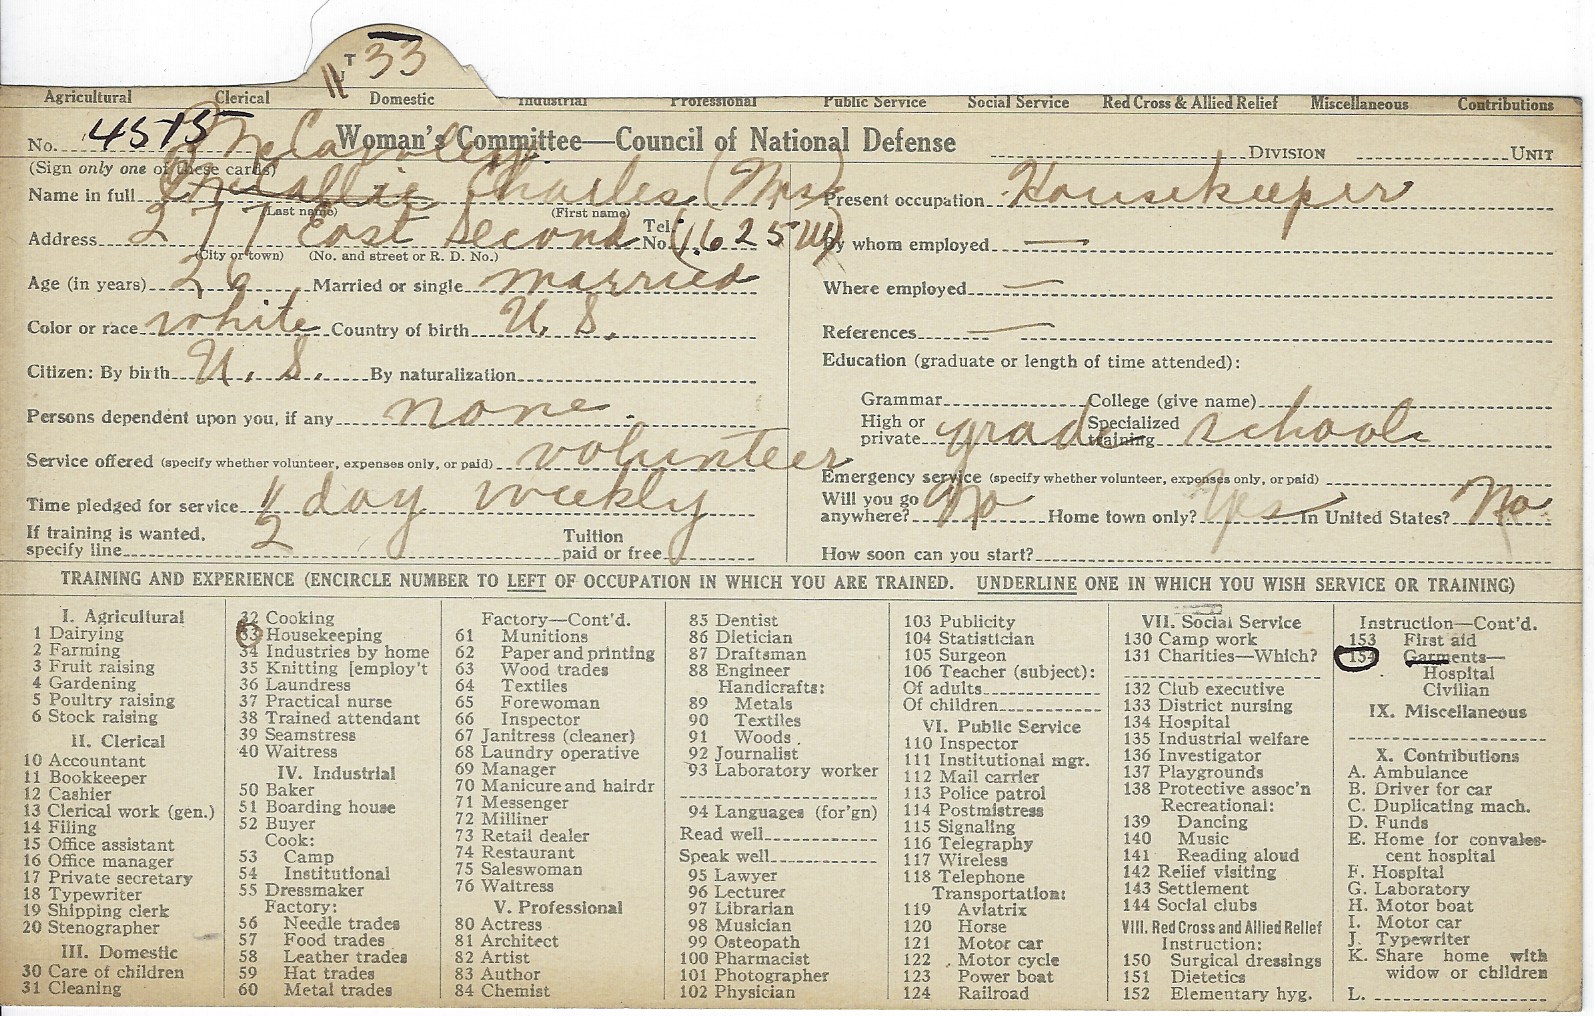 T 33
Agricultural Clerical Domestic Industrial Professional Public Service Social Service Red Cross & Allied Relief Miscellaneous Contributions
No. 4515 Woman's Committee—Council of National Defense DIVISION UNIT
(Sign only one of these cards)
McCauley
Name in full Charles (Mrs)
(Last name) (First name)
Address 277 East Second Tel. No. (1625W)
(City or town) (No. and street or R. D. No.)
Age (in years) 26 Married or single married
Color or race white Country of birth U. S.
Citizen: By birth U. S. By naturalization
Persons dependent upon you, if any none.
Service offered (specify whether volunteer, expenses only, or paid) volunteer
Time pledged for service 1/2 day weekly
If training is wanted, specify line Tuition paid or free
Present occupation Housekeeper
By whom employed —
Where employed —
References —
Education (graduate or length of time attended):
Grammar College (give name)
High or private grade Specialized training schools
Emergency service (specify whether volunteer, expenses only, or paid)
Will you go anywhere? No Home town only? Yes In United States? No.
How soon can you start?
TRAINING AND EXPERIENCE (ENCIRCLE NUMBER TO LEFT OF OCCUPATION IN WHICH YOU ARE TRAINED. UNDERLINE ONE IN WHICH YOU WISH SERVICE OR TRAINING)
I. Agricultural
1 Dairying
2 Farming
3 Fruit raising
4 Gardening
5 Poultry raising
6 Stock raising
II. Clerical
10 Accountant
11 Bookkeeper
12 Cashier
13 Clerical work (gen.)
14 Filing
15 Office assistant
16 Office manager
17 Private secretary
18 Typewriter
19 Shipping clerk
20 Stenographer
III. Domestic
30 Care of children
31 Cleaning
32 Cooking
33 Housekeeping
34 Industries by home
35 Knitting [employ't
36 Laundress
37 Practical nurse
38 Trained attendant
39 Seamstress
40 Waitress
IV. Industrial
50 Baker
51 Boarding house
52 Buyer
Cook:
53 Camp
54 Institutional
55 Dressmaker
Factory:
56 Needle trades
57 Food trades
58 Leather trades
59 Hat trades
60 Metal trades
Factory—Cont'd.
61 Munitions
62 Paper and printing
63 Wood trades
64 Textiles
65 Forewoman
66 Inspector
67 Janitress (cleaner)
68 Laundry operative
69 Manager
70 Manicure and hairdr
71 Messenger
72 Milliner
73 Retail dealer
74 Restaurant
75 Saleswoman
76 Waitress
V. Professional
80 Actress
81 Architect
82 Artist
83 Author
84 Chemist
85 Dentist
86 Dietician
87 Draftsman
88 Engineer
Handicrafts:
89 Metals
90 Textiles
91 Woods
92 Journalist
93 Laboratory worker
94 Languages (for'gn)
Read well
Speak well
95 Lawyer
96 Lecturer
97 Librarian
98 Musician
99 Osteopath
100 Pharmacist
101 Photographer
102 Physician
103 Publicity
104 Statistician
105 Surgeon
106 Teacher (subject):
Of adults
Of children
VI. Public Service
110 Inspector
111 Institutional mgr.
112 Mail carrier
113 Police patrol
114 Postmistress
115 Signaling
116 Telegraphy
117 Wireless
118 Telephone
Transportation:
119 Aviatrix
120 Horse
121 Motor car
122 Motor cycle
123 Power boat
124 Railroad
VII. Social Service
130 Camp work
131 Charities—Which?
132 Club executive
133 District nursing
134 Hospital
135 Industrial welfare
136 Investigator
137 Playgrounds
138 Protective assoc'n
Recreational:
139 Dancing
140 Music
141 Reading aloud
142 Relief visiting
143 Settlement
144 Social clubs
VIII. Red Cross and Allied Relief
Instruction:
150 Surgical dressings
151 Dietetics
152 Elementary hyg.
Instruction—Cont'd.
153 First aid
154 Garments—
Hospital
Civilian
IX. Miscellaneous
X. Contributions
A. Ambulance
B. Driver for car
C. Duplicating mach.
D. Funds
E. Home for convales-
cent hospital
F. Hospital
G. Laboratory
H. Motor boat
I. Motor car
J. Typewriter
K. Share home with
widow or children
L.